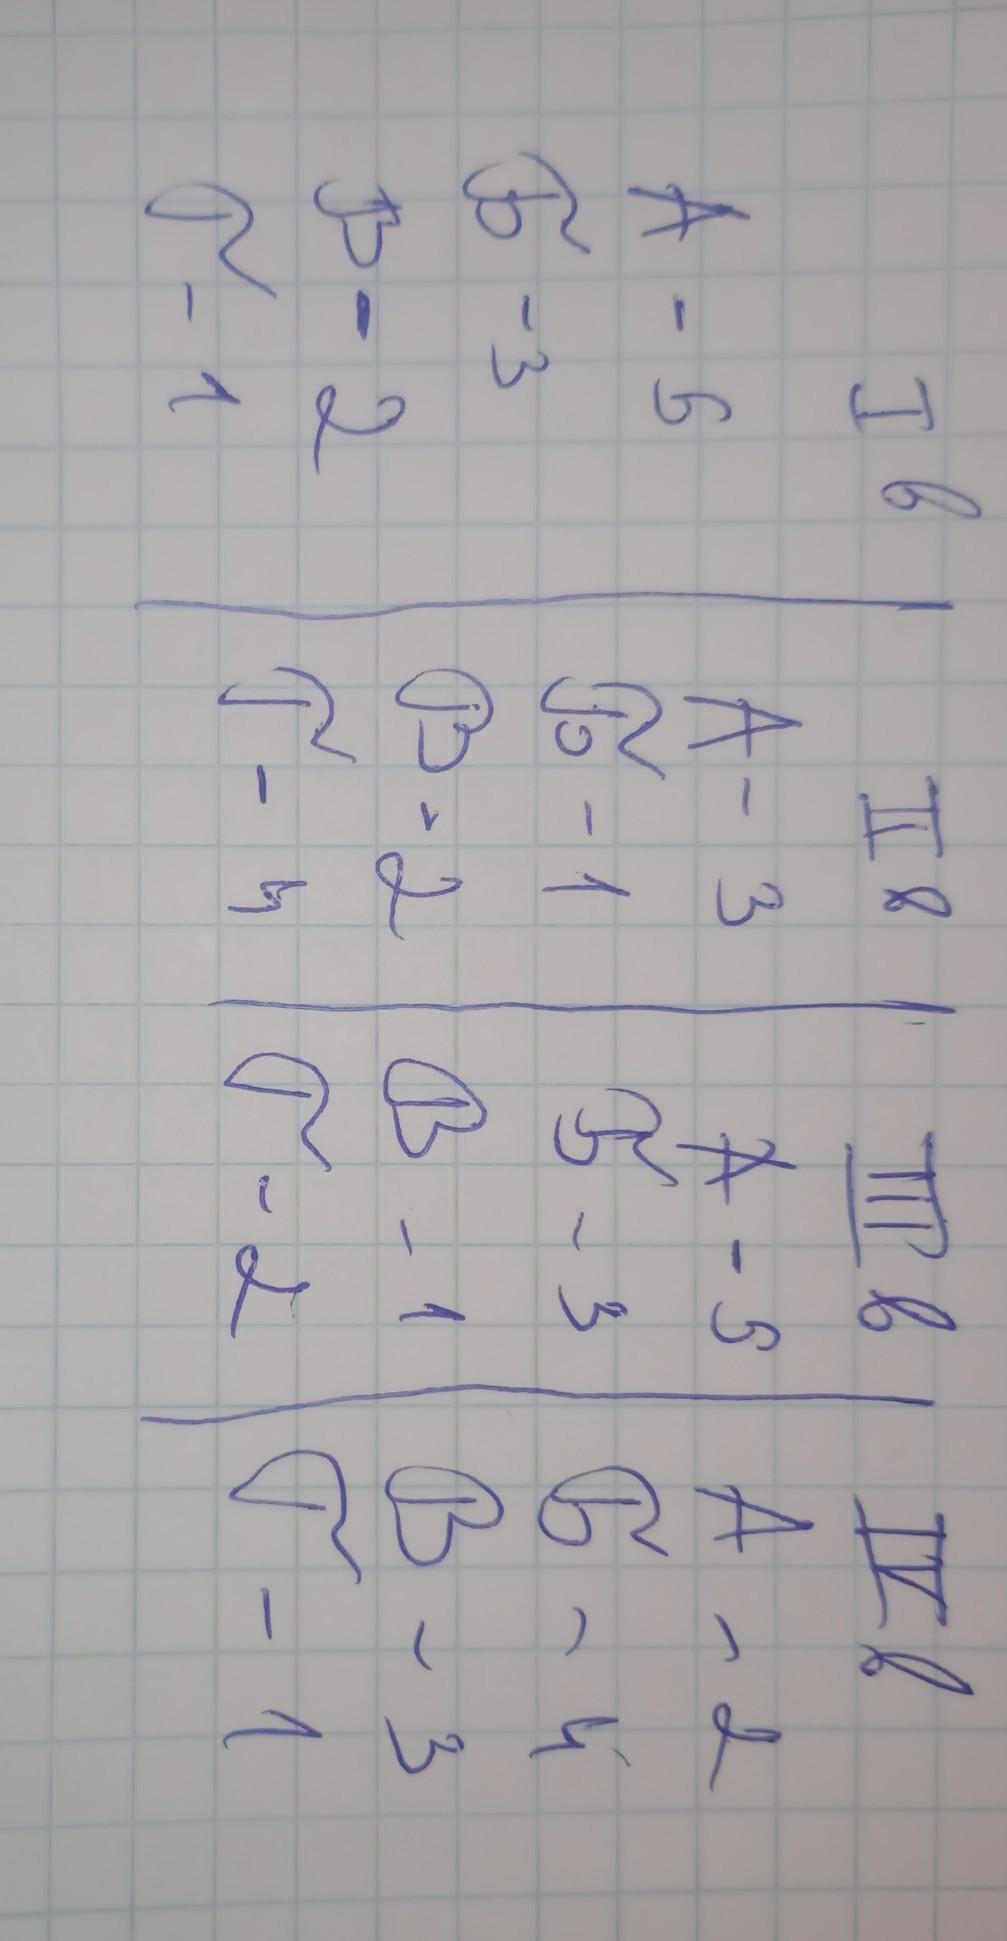 I в
А - 5
Б - 3
В - 2
Г - 1
II в
А - 3
Б - 1
В - 2
Г - 4
III в
А - 5
Б - 3
В - 1
Г - 2
IV в
А - 2
Б - 4
В - 3
Г - 1